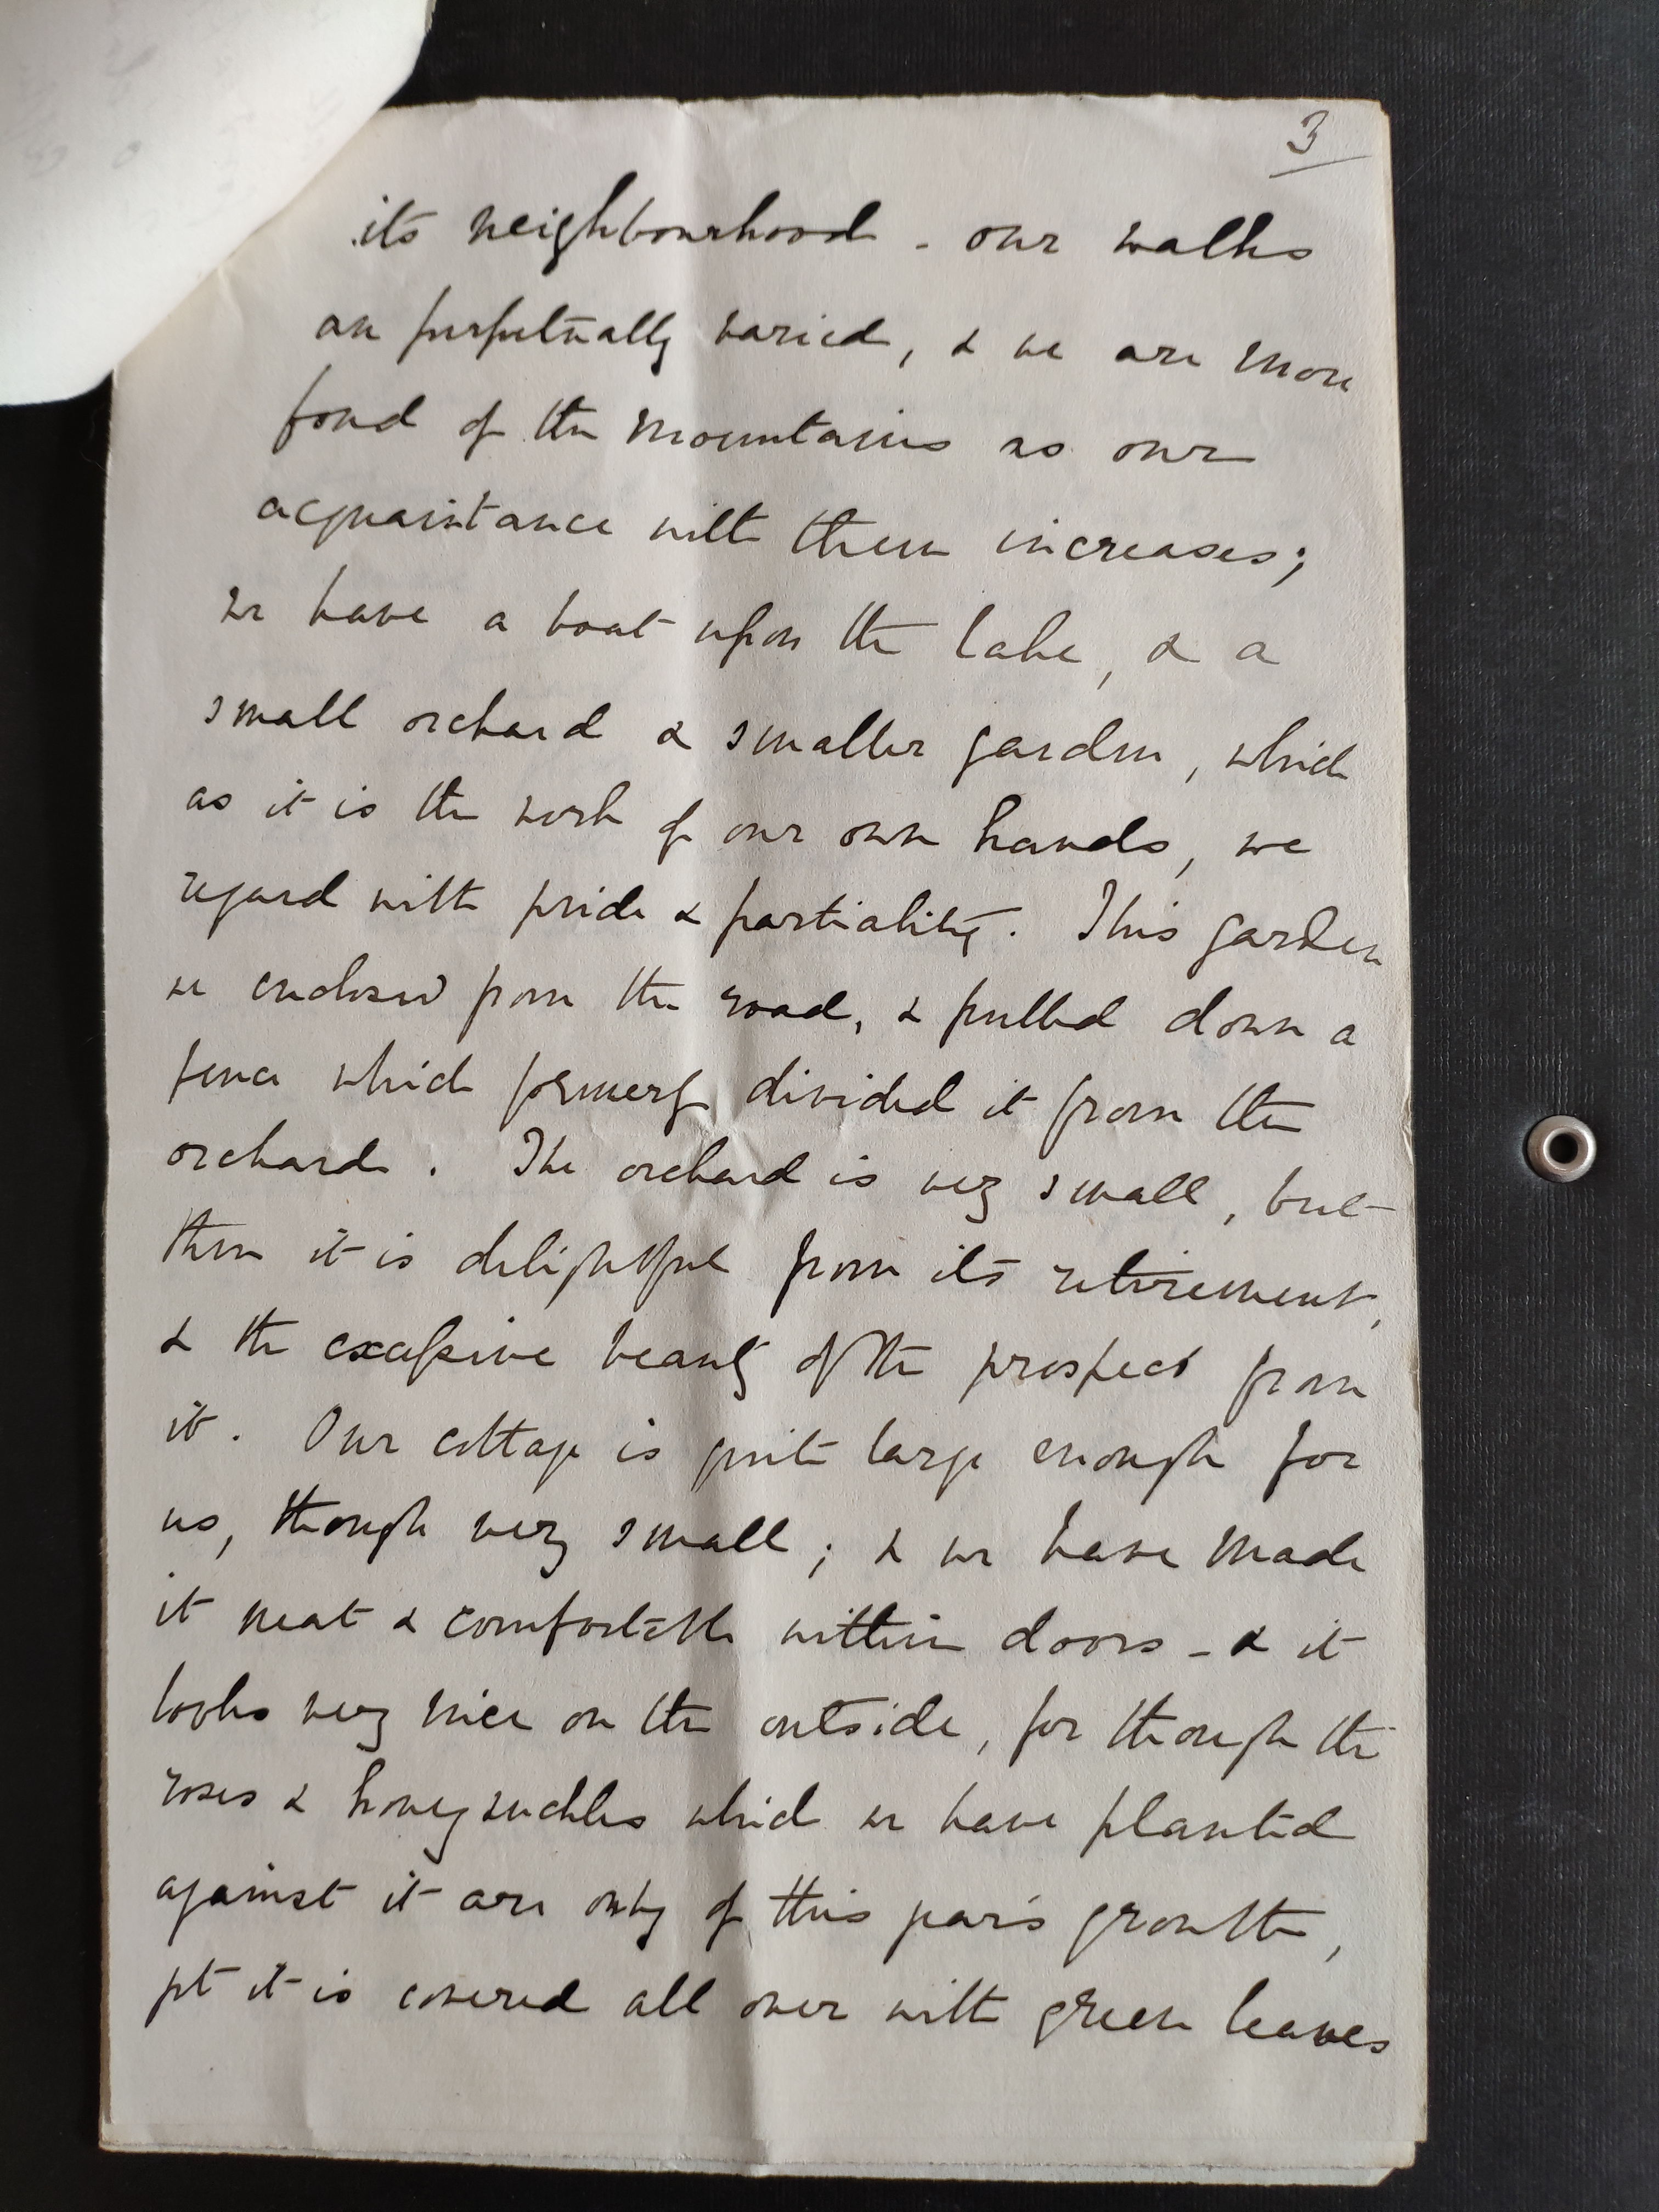 3
its neighbourhood - our walks
are perpetually varied, & we are more
fond of the mountains as our
acquaintance with them increases;
we have a boat upon the lake, & a
small orchard & smaller garden, which
as it is the work of our own hands, we
regard with pride & partiality. This garden
we enclosed from the road, & pulled down a
fence which formerly divided it from the
orchard. The orchard is very small, but
then it is delightful from its retirement,
& the excessive beauty of the prospect from
it. Our cottage is quite large enough for
us, though very small; & we have made
it neat & comfortable within doors - & it
looks very nice on the outside, for though the
roses & honeysuckles which we have planted
against it are only of this year's growth,
yet it is covered all over with green leaves